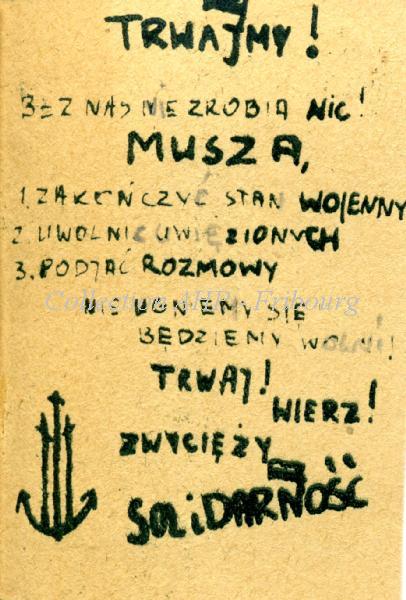 TRWAJMY!
BEZ NAS NIE ZROBIĄ NIC!
MUSZĄ,
1. ZAKOŃCZYĆ STAN WOJENNY
2. UWOLNIĆ UWIĘZIONYCH
3. PODJĄĆ ROZMOWY
Collection AHP - Fribourg
NIE
SIĘ
BĘDZIEMY WOLNI!
TRWAJ!
WIERZ!
ZWYCIĘŻY
SOLIDARNOŚĆ